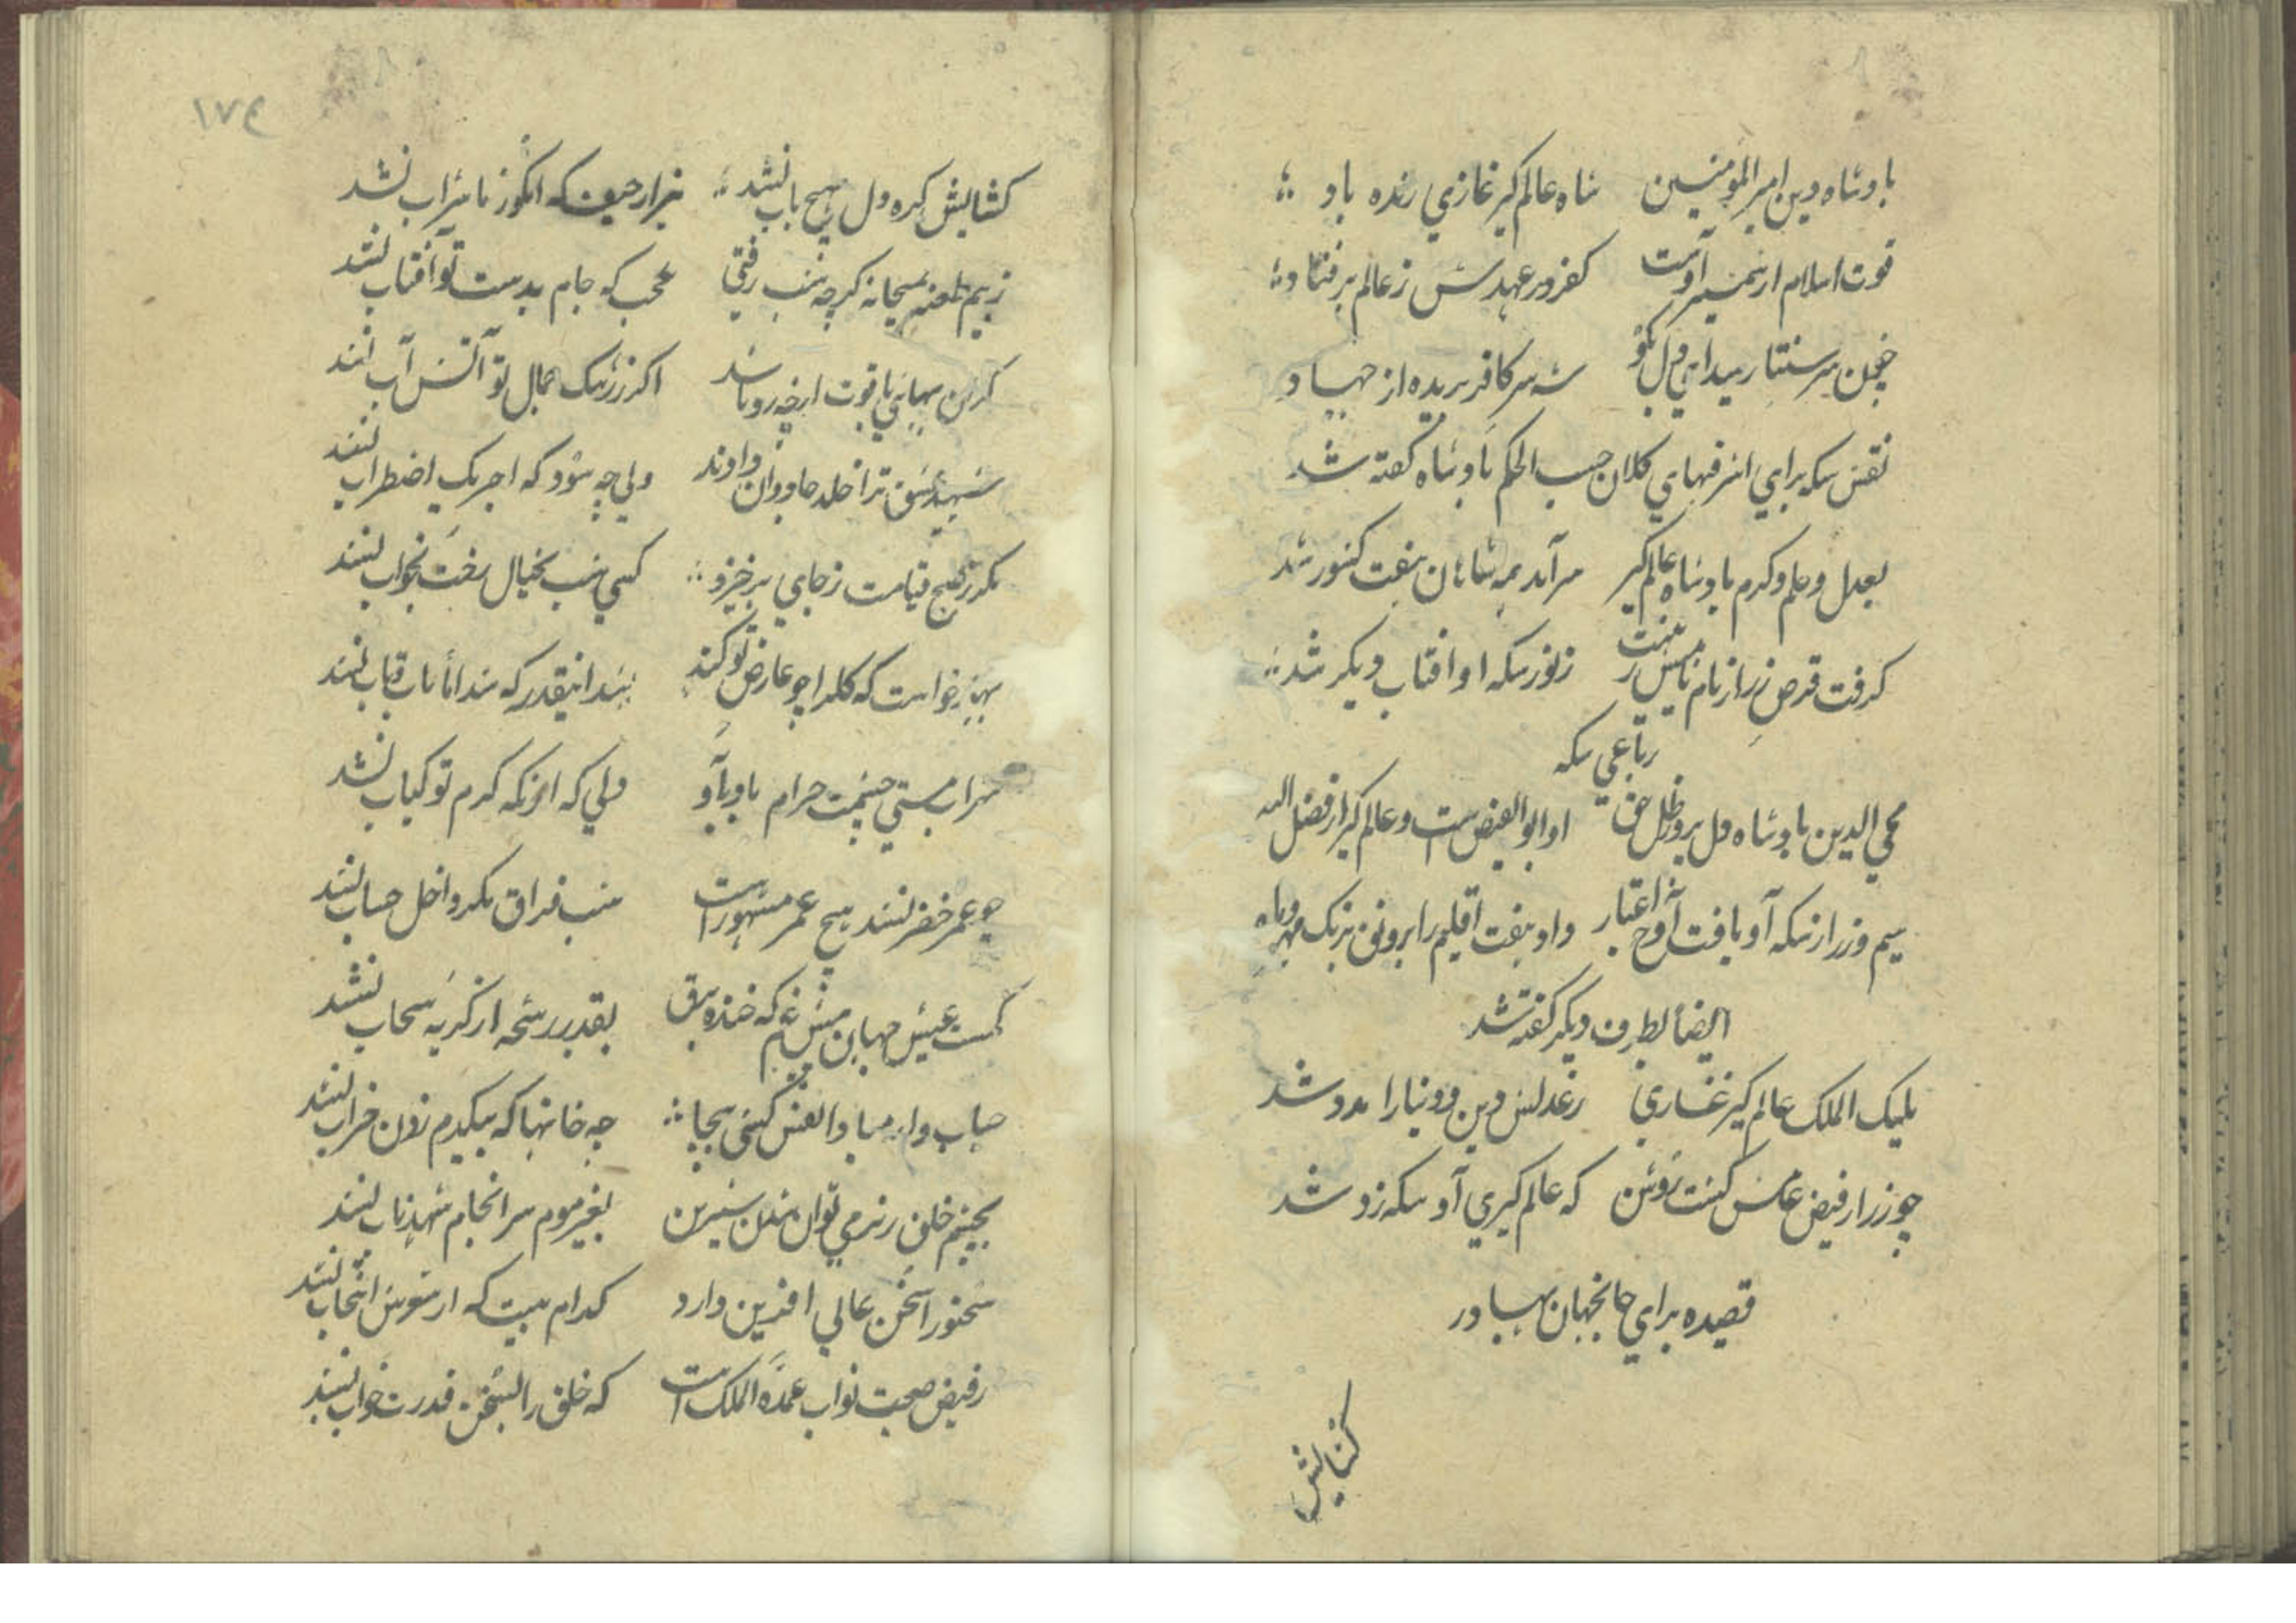 بادشاه دین امیر المؤمنین شاه عالم کیر غازي زنده باد
قوت اسلام از شمشیر اوست کفر در عهدش ز عالم برفتاد
شد سر کافر بریده از جهاد
نقش سکه براي اشرفیهاي کلان حسب الحکم بادشاه کفته شد
بعدل و علم و کرم بادشاه عالم کیر سر آمد همه شاهان هفت کشور شد
کرفت قرص زر از نام نامیش زینت ز نور سکه او افتاب دیکر شد
رباعي سکه
محي الدین بادشاه دل پرور ظل حق او ابو الفیض ست و عالم کیر از فضل اله
سیم و زر از سکه او یافت اوج اعتبار داد هفت اقلیم را رونق برنک مهر و ماه
ایضا بطرف دیکر کفته شد
ملیک الملک عالم کیر غازي ز عدلش دین و دنیا را مدد شد
چو زر از فیض عکسش کشت روشن که عالم کیري او سکه زد شد
قصیده براي خانجهان بهادر
کشایش
۱۷۴
کشایش کره دل بهیچ باب نشد هزار حیف که انکور ما شراب نشد
ز بیم طعنه بمیخانه کرچه شب رفتي عجب که جام بدست تو آفتاب نشد
اکر ز رشک جمال تو آتش آب نشد
شهید عشق ترا خلد جاودان دادند ولي چه سود که اجر یک اضطراب نشد
مکر ز صبح قیامت ز جاي برخیزد کسي که شب بخیال رخت بخواب نشد
بهار خواست که کل را چو عارض تو کند شد اینقدر که شد اما باب و تاب نشد
شراب مستي چشمت حرام باد بر او دلي که از نکه کرم تو کباب نشد
چو عمر خضر نشد هیچ عمر مشهور است شب فراق مکر داخل حساب نشد
کمست عیش جهان بیش غم که خنده برق بقدر رشحه از کریه سحاب نشد
حباب وار مبادا نفس کشي بیجا چه خانها که بیکدم زدن خراب نشد
بچشم خلق ز نرمي توان شدن شیرین بغیر موم سرانجام شهد ناب نشد
سخنور از سخن عالي افرین دارد کدام بیت که از شعرش انتخاب نشد
ز فیض صحبت نواب عمدة الملک است که خلق را بسخن قدرت جواب نشد